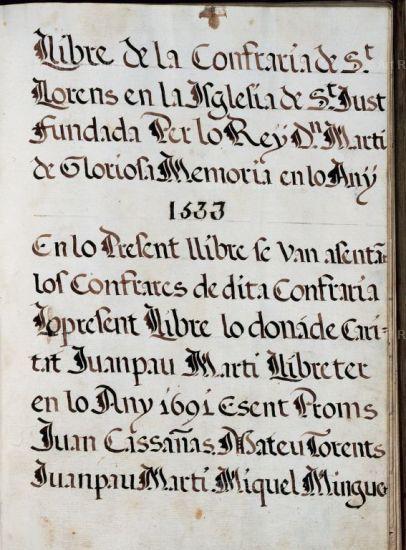 Llibre de la Confraria de S.t
Llorens en la Isglesia de S.t Just
Fundada Per lo Rey D.n Marti
de Gloriosa Memoria en lo Any
1533
En lo Present llibre se Van asentã-
los Confrares de dita Confraria
lo present Llibre lo doná de Cari-
tat Juanpau Marti Llibreter
en lo Any 1691 Esent Proms
Juan Cassañas. Mateu Torents
Juanpau Marti Miquel Mingue